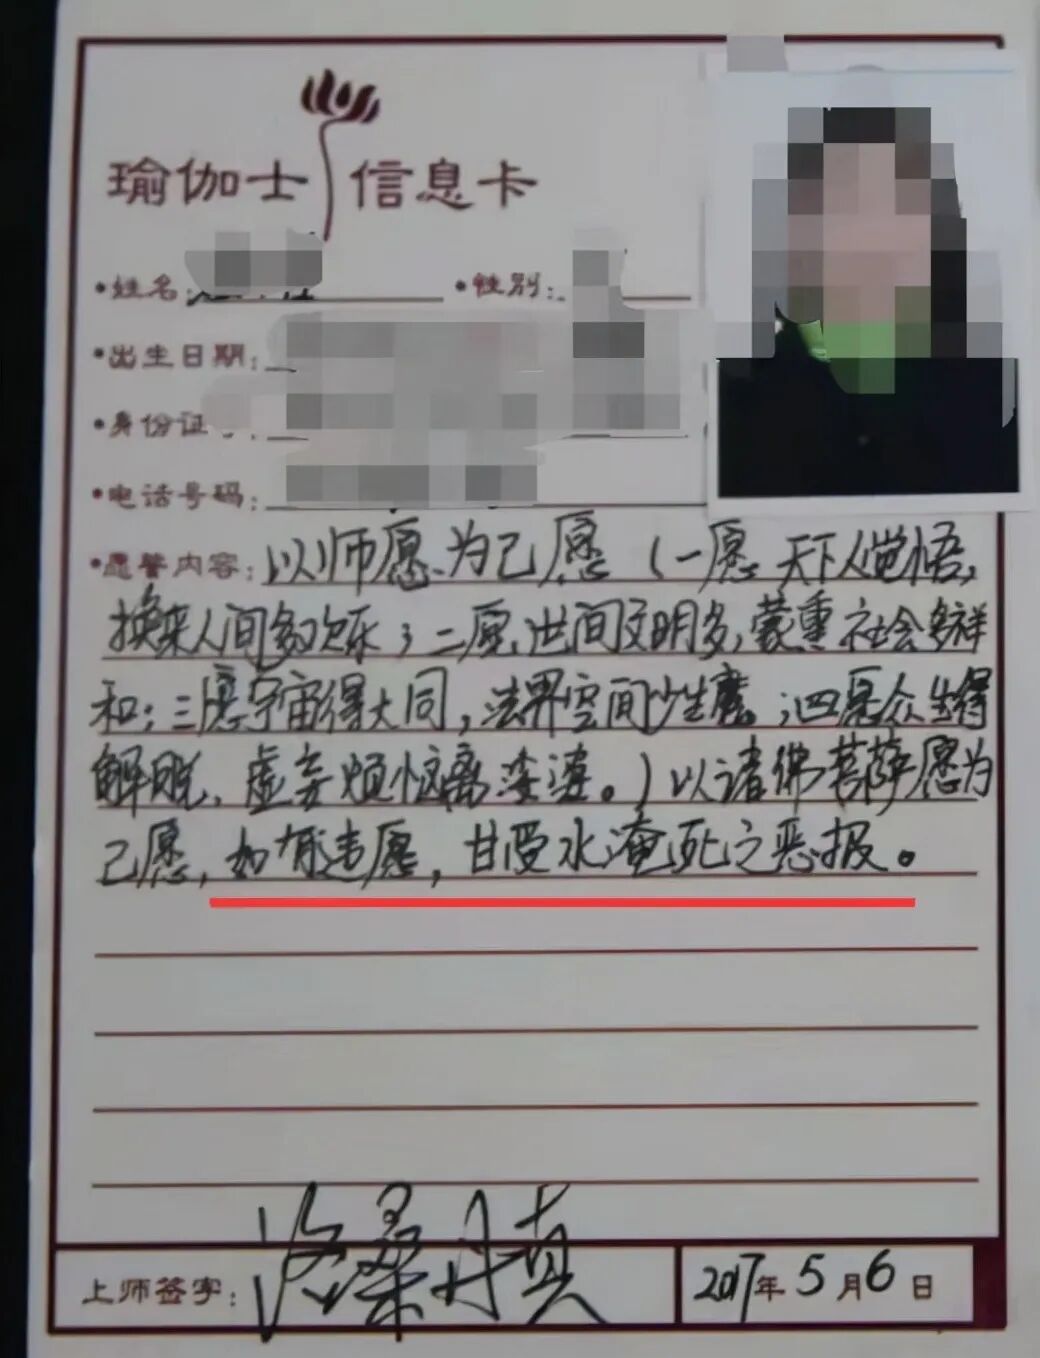 瑜伽士信息卡
•姓名: •性别:
•出生日期:
•身份证
•电话号码:
•愿誓内容: 以师愿为己愿（一愿天下人觉悟,
换来人间多欢乐；二愿世间文明多,蒙熏社会多祥
和；三愿宇宙得大同，法界空间少生魔。；四愿众生得
解脱，虚妄烦恼离娑婆。）以诸佛菩萨愿为
己愿，如有违愿，甘受水淹死之恶报。
上师签字: 2017年5月6日